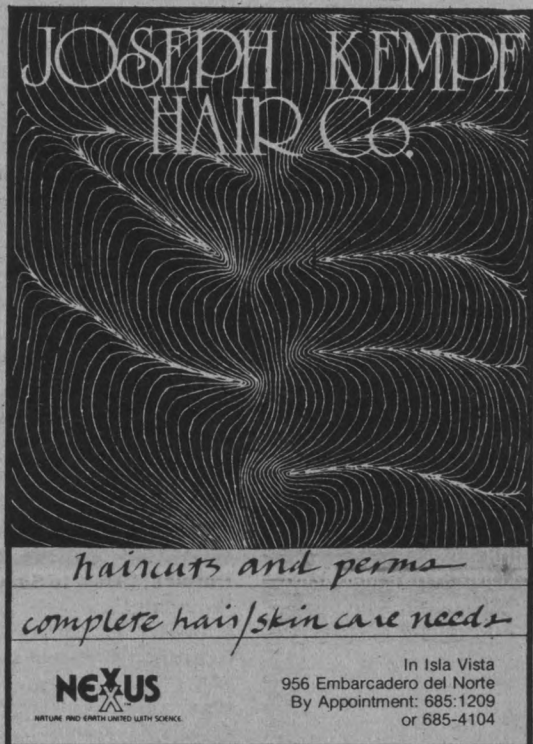 JOSEPH KEMPF
HAIR Co.
haircuts and perms
complete hair/skin care needs
NEXXUS
NATURE AND EARTH UNITED WITH SCIENCE.
In Isla Vista
956 Embarcadero del Norte
By Appointment: 685:1209
or 685-4104